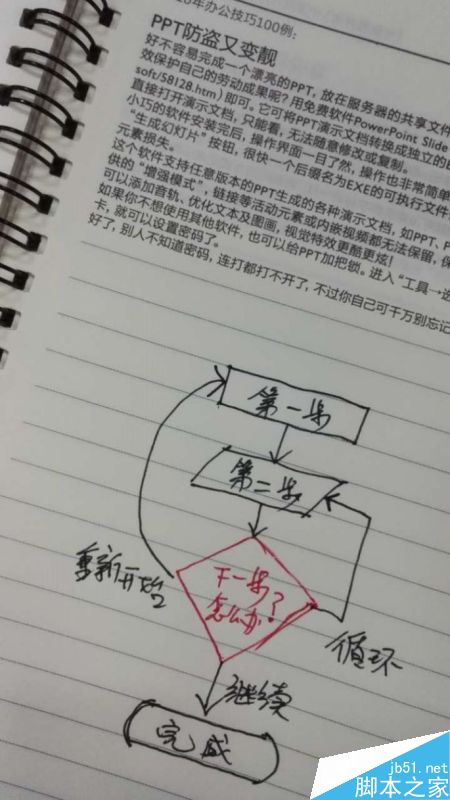 年办公技巧100例：
PPT防盗又变靓
好不容易完成一个漂亮的PPT，放在服务器的共享文件
效保护自己的劳动成果呢？用免费软件PowerPoint Slide
soft/58128.htm）即可。它可将PPT演示文档转换成独立的
直接打开演示文档，只能看，无法随意修改或复制。
小巧的软件安装完后，操作界面一目了然，操作也非常简单
“生成幻灯片”按钮，很快一个后缀名为EXE的可执行文件
元素损失。
这个软件支持任意版本的PPT生成的各种演示文档，如PPT、P
供的“增强模式”，链接等活动元素或内嵌视频都无法保留，保
可以添加音轨、优化文本及图画，视觉特效更酷更炫！
如果你不想使用其他软件，也可以给PPT加把锁。进入“工具→选
卡，就可以设置密码了。
好了，别人不知道密码，连打都打不开了，不过你自己可千万别忘记
第一步
第二步
重新开始
下一步
怎么办？
循环
继续
完成
jb51.net
脚本之家